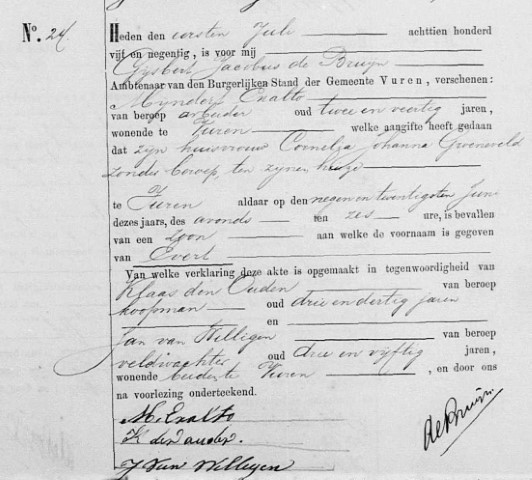 No. 24.
Heden den eersten Juli achttien honderd
vijf en negentig, is voor mij
Gijsbert Jacobus de Bruyn
Ambtenaar van den Burgerlijken Stand der Gemeente Vuren, verschenen:
Myndert Exalto
van beroep arbeider oud twee en veertig jaren,
wonende te Vuren welke aangifte heeft gedaan
dat zijn huisvrouw Cornelia Johanna Groeneveld
zonder beroep, ten zynen huize
te Vuren aldaar op den negen en twentigsten Juni
dezes jaars, des avonds ten zes ure, is bevallen
van een zoon aan welke de voornaam is gegeven
van Evert
Van welke verklaring deze akte is opgemaakt in tegenwoordigheid van
Klaas den Ouden van beroep
koopman oud drie en dertig jaren
en
Jan van Willigen van beroep
veldwachter oud drie en vijftig jaren,
wonende beiden te Vuren, en door ons
na voorlezing onderteekend.
M. Exalto
K den ouden.
J Van Willigen
de Bruijn